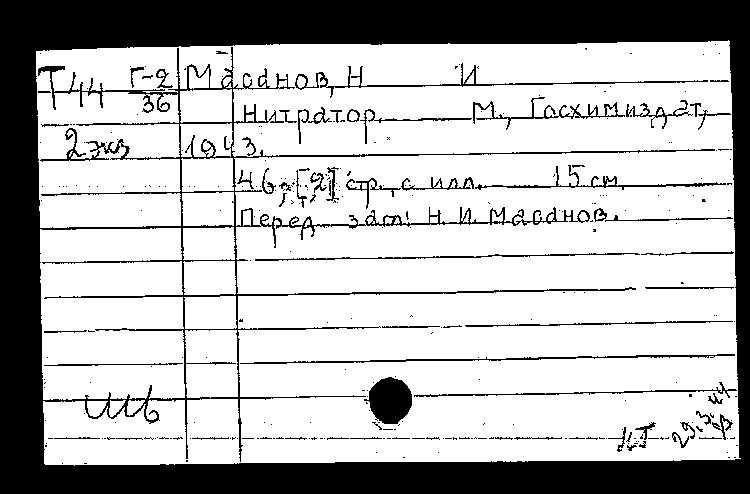 Т44 Г-2/36 Масанов, Н И
Нитратор. М., Госхимиздат,
2 экз 1943.
46, [2] стр., с илл. 15 см.
Перед загл: Н. И. Масанов.
Шв
КГ 29.3.44